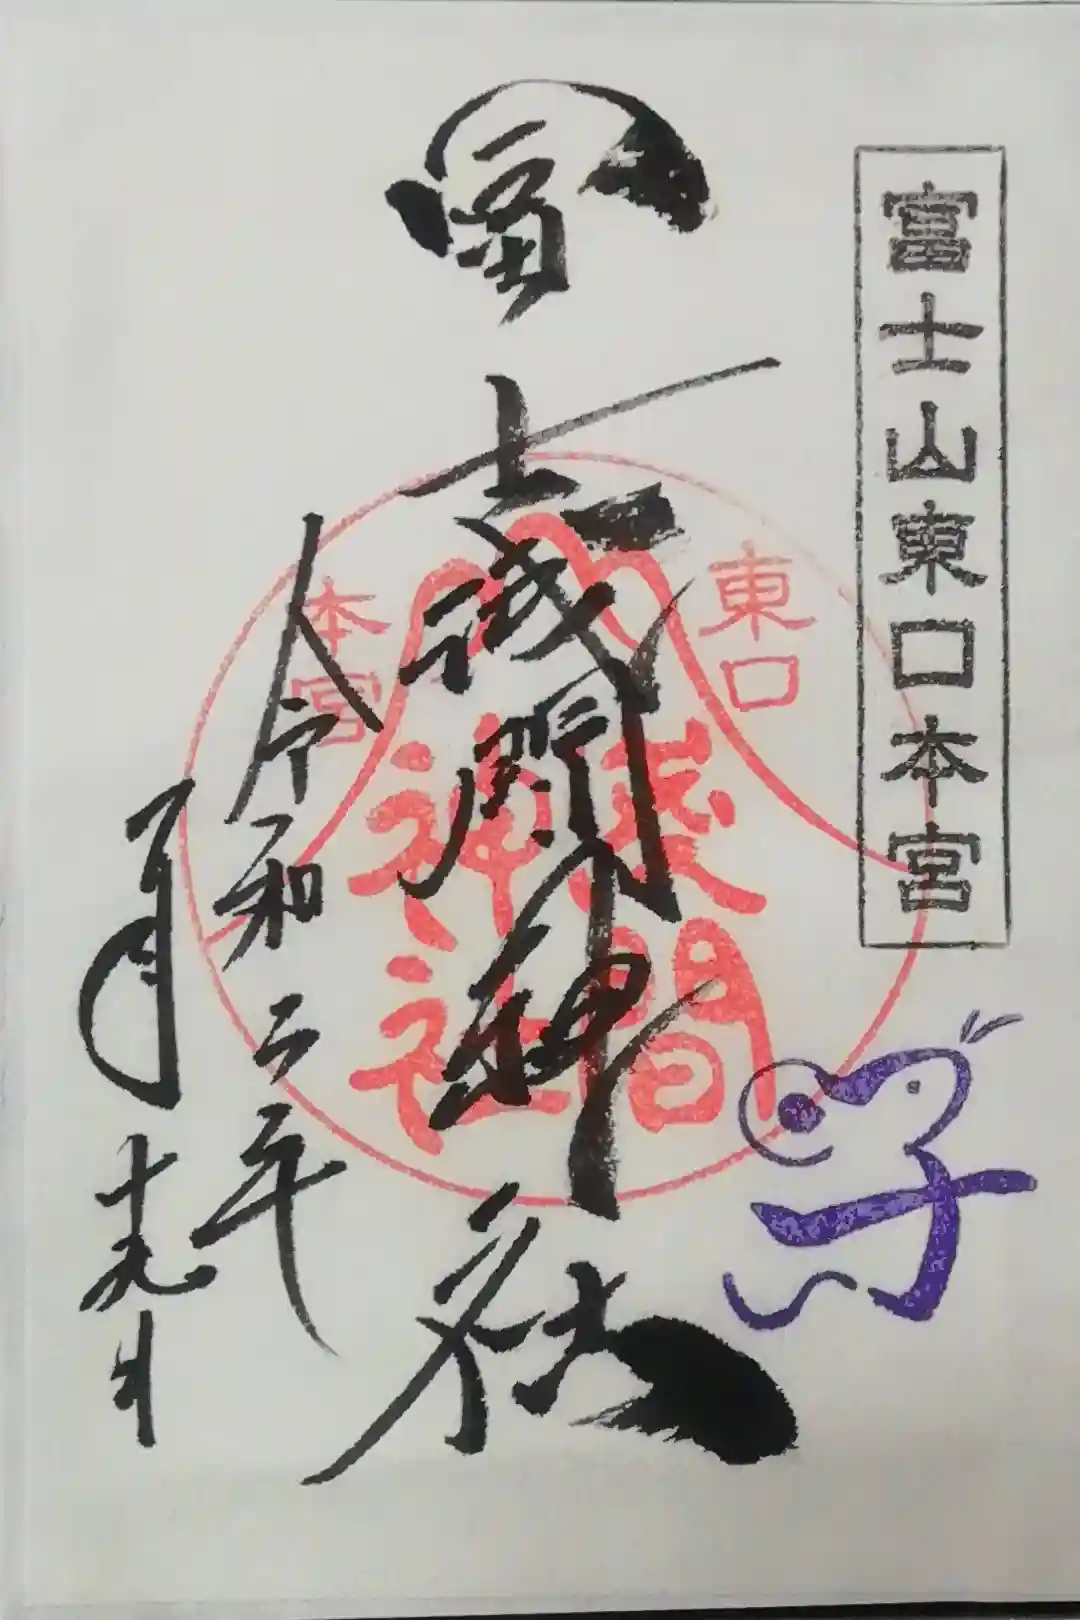 富士山東口本宮
冨士浅間神社
東口
本宮
淺間
神社
令和二年
月十九日
子